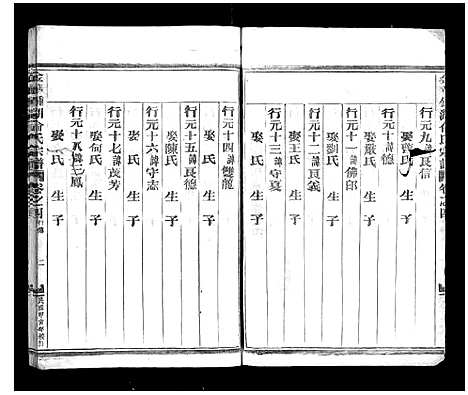 行元九諱良信
娶龔氏 生子
行元十諱德
娶嚴氏 生子
行元十一諱佛印
娶劉氏 生子
行元十二諱良義
娶王氏 生子
行元十三諱守夏
娶氏 生子
行元十四諱雙龍
娶氏 生子
行元十五諱良德
娶陳氏 生子
行元十六諱守志
娶氏 生子
行元十七諱茂芳
娶何氏 生子
行元十八諱三鳳
娶氏 生子